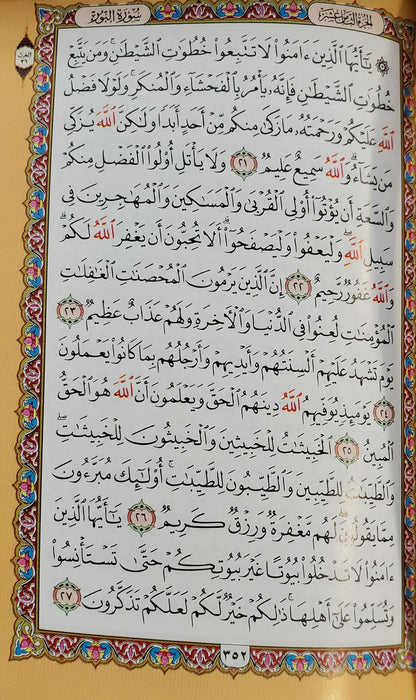 سُورَةُ النُّورِ
الجُزْءُ الثَّامِنَ عَشَرَ
۞ يَٰٓأَيُّهَا ٱلَّذِينَ ءَامَنُوا۟ لَا تَتَّبِعُوا۟ خُطُوَٰتِ ٱلشَّيْطَٰنِ ۚ وَمَن يَتَّبِعْ
خُطُوَٰتِ ٱلشَّيْطَٰنِ فَإِنَّهُۥ يَأْمُرُ بِٱلْفَحْشَآءِ وَٱلْمُنكَرِ ۚ وَلَوْلَا فَضْلُ
ٱللَّهِ عَلَيْكُمْ وَرَحْمَتُهُۥ مَا زَكَىٰ مِنكُم مِّنْ أَحَدٍ أَبَدًا وَلَٰكِنَّ ٱللَّهَ يُزَكِّى
مَن يَشَآءُ ۗ وَٱللَّهُ سَمِيعٌ عَلِيمٌ ٢١ وَلَا يَأْتَلِ أُو۟لُوا۟ ٱلْفَضْلِ مِنكُمْ
وَٱلسَّعَةِ أَن يُؤْتُوٓا۟ أُو۟لِى ٱلْقُرْبَىٰ وَٱلْمَسَٰكِينَ وَٱلْمُهَٰجِرِينَ فِى
سَبِيلِ ٱللَّهِ ۖ وَلْيَعْفُوا۟ وَلْيَصْفَحُوٓا۟ ۗ أَلَا تُحِبُّونَ أَن يَغْفِرَ ٱللَّهُ لَكُمْ ۗ
وَٱللَّهُ غَفُورٌ رَّحِيمٌ ٢٢ إِنَّ ٱلَّذِينَ يَرْمُونَ ٱلْمُحْصَنَٰتِ ٱلْغَٰفِلَٰتِ
ٱلْمُؤْمِنَٰتِ لُعِنُوا۟ فِى ٱلدُّنْيَا وَٱلْءَاخِرَةِ وَلَهُمْ عَذَابٌ عَظِيمٌ ٢٣
يَوْمَ تَشْهَدُ عَلَيْهِمْ أَلْسِنَتُهُمْ وَأَيْدِيهِمْ وَأَرْجُلُهُم بِمَا كَانُوا۟ يَعْمَلُونَ
٢٤ يَوْمَئِذٍ يُوَفِّيهِمُ ٱللَّهُ دِينَهُمُ ٱلْحَقَّ وَيَعْلَمُونَ أَنَّ ٱللَّهَ هُوَ ٱلْحَقُّ
ٱلْمُبِينُ ٢٥ ٱلْخَبِيثَٰتُ لِلْخَبِيثِينَ وَٱلْخَبِيثُونَ لِلْخَبِيثَٰتِ ۖ
وَٱلطَّيِّبَٰتُ لِلطَّيِّبِينَ وَٱلطَّيِّبُونَ لِلطَّيِّبَٰتِ ۚ أُو۟لَٰٓئِكَ مُبَرَّءُونَ
مِمَّا يَقُولُونَ ۖ لَهُم مَّغْفِرَةٌ وَرِزْقٌ كَرِيمٌ ٢٦ يَٰٓأَيُّهَا ٱلَّذِينَ
ءَامَنُوا۟ لَا تَدْخُلُوا۟ بُيُوتًا غَيْرَ بُيُوتِكُمْ حَتَّىٰ تَسْتَأْنِسُوا۟
وَتُسَلِّمُوا۟ عَلَىٰٓ أَهْلِهَا ۚ ذَٰلِكُمْ خَيْرٌ لَّكُمْ لَعَلَّكُمْ تَذَكَّرُونَ ٢٧
٣٥٢